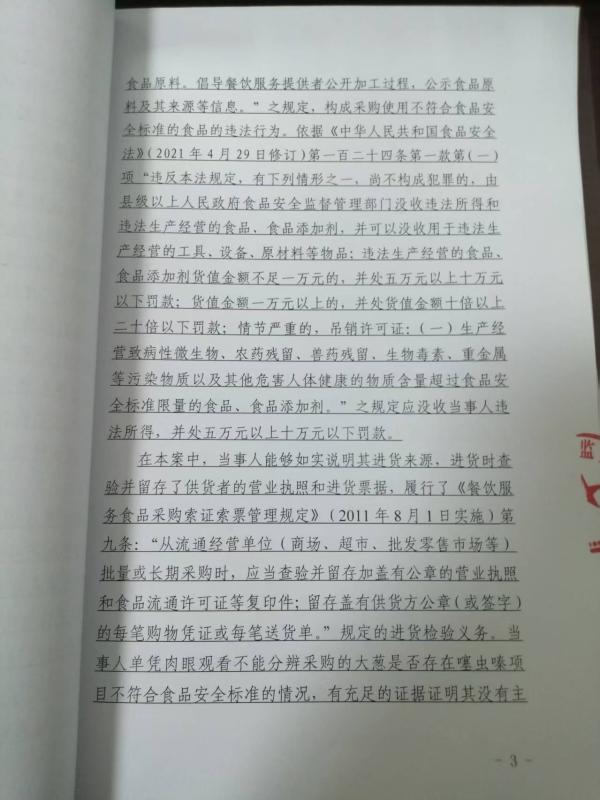 食品原料。倡导餐饮服务提供者公开加工过程，公示食品原
料及其来源等信息。”之规定，构成采购使用不符合食品安
全标准的食品的违法行为。依据《中华人民共和国食品安全
法》（2021年4月29日修订）第一百二十四条第一款第（一）
项“违反本法规定，有下列情形之一，尚不构成犯罪的，由
县级以上人民政府食品安全监督管理部门没收违法所得和
违法生产经营的食品、食品添加剂，并可以没收用于违法生
产经营的工具、设备、原材料等物品；违法生产经营的食品、
食品添加剂货值金额不足一万元的，并处五万元以上十万元
以下罚款；货值金额一万元以上的，并处货值金额十倍以上
二十倍以下罚款；情节严重的，吊销许可证：（一）生产经
营致病性微生物、农药残留、兽药残留、生物毒素、重金属
等污染物质以及其他危害人体健康的物质含量超过食品安
全标准限量的食品、食品添加剂。”之规定应没收当事人违
法所得，并处五万元以上十万元以下罚款。
在本案中，当事人能够如实说明其进货来源，进货时查
验并留存了供货者的营业执照和进货票据，履行了《餐饮服
务食品采购索证索票管理规定》（2011年8月1日实施）第
九条：“从流通经营单位（商场、超市、批发零售市场等）
批量或长期采购时，应当查验并留存加盖有公章的营业执照
和食品流通许可证等复印件；留存盖有供货方公章（或签字）
的每笔购物凭证或每笔送货单。”规定的进货检验义务。当
事人单凭肉眼观看不能分辨采购的大葱是否存在噻虫嗪项
目不符合食品安全标准的情况，有充足的证据证明其没有主
- 3 -
监